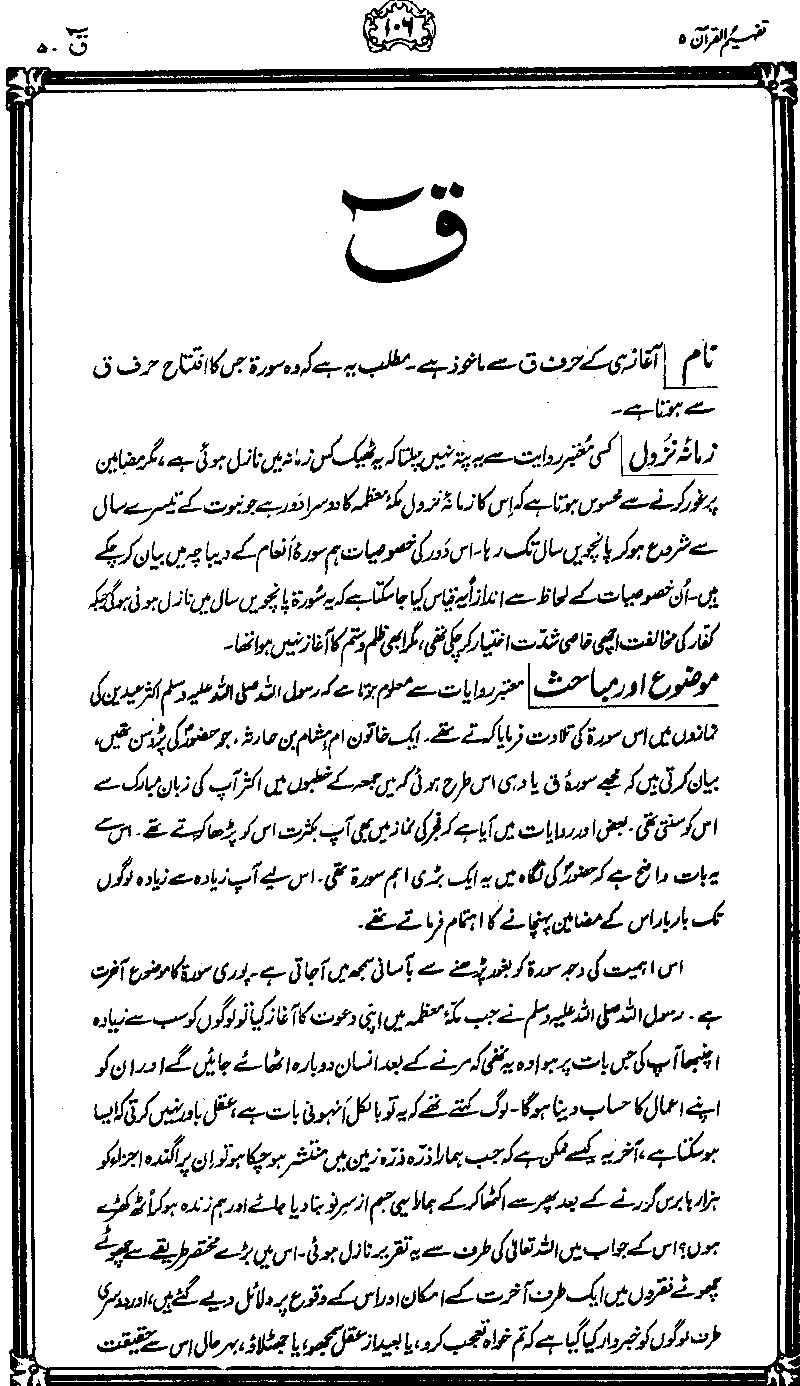 تفہیم القرآن ۵
۱۰۶
قٓ ۵۰
قٓ
نام آغاز ہی کے حرف ق سے ماخوذ ہے۔ مطلب یہ ہے کہ وہ سورۃ جس کا افتتاح حرف ق
سے ہوتا ہے۔
زمانۂ نزول کسی معتبر روایت سے یہ پتہ نہیں چلتا کہ یہ ٹھیک کس زمانہ میں نازل ہوئی ہے، مگر مضامین
پر غور کرنے سے محسوس ہوتا ہے کہ اِس کا زمانۂ نزول مکۂ معظمہ کا دوسرا دَور ہے جو نبوت کے تیسرے سال
سے شروع ہو کر پانچویں سال تک رہا۔ اس دَور کی خصوصیات ہم سورۂ اَنعام کے دیباچہ میں بیان کر چکے
ہیں۔ اُن خصوصیات کے لحاظ سے اندازاً یہ قیاس کیا جا سکتا ہے کہ یہ سُورۃ پانچویں سال میں نازل ہوئی ہوگی جبکہ
کفار کی مخالفت اچھی خاصی شدّت اختیار کر چکی تھی، مگر ابھی ظلم و ستم کا آغاز نہیں ہوا تھا۔
موضوع اور مباحث معتبر روایات سے معلوم ہوتا ہے کہ رسول اللہ صلی اللہ علیہ وسلم اکثر عیدین کی
نمازوں میں اس سورۃ کی تلاوت فرمایا کرتے تھے۔ ایک خاتون ام ہشام بن حارثہ، جو حضورؐ کی پڑوسن تھیں،
بیان کرتی ہیں کہ مجھے سورۂ ق یاد ہی اس طرح ہوئی کہ میں جمعہ کے خطبوں میں اکثر آپ کی زبان مبارک سے
اس کو سنتی تھی۔ بعض اور روایات میں آیا ہے کہ فجر کی نماز میں بھی آپ بکثرت اس کو پڑھا کرتے تھے۔ اس سے
یہ بات واضح ہے کہ حضورؐ کی نگاہ میں یہ ایک بڑی اہم سورۃ تھی۔ اس لیے آپ زیادہ سے زیادہ لوگوں
تک بار بار اس کے مضامین پہنچانے کا اہتمام فرماتے تھے۔
اس اہمیت کی وجہ سورۃ کو بغور پڑھنے سے بآسانی سمجھ میں آجاتی ہے۔ پوری سورۃ کا موضوع آخرت
ہے۔ رسول اللہ صلی اللہ علیہ وسلم نے جب مکۂ معظمہ میں اپنی دعوت کا آغاز کیا تو لوگوں کو سب سے زیادہ
اچنبھا آپ کی جس بات پر ہوا وہ یہ تھی کہ مرنے کے بعد انسان دوبارہ اٹھائے جائیں گے اور ان کو
اپنے اعمال کا حساب دینا ہوگا۔ لوگ کہتے تھے کہ یہ تو بالکل اَنہونی بات ہے، عقل باور نہیں کرتی کہ ایسا
ہو سکتا ہے، آخر یہ کیسے ممکن ہے کہ جب ہمارا ذرّہ ذرّہ زمین میں منتشر ہو چکا ہو تو اِن پراگندہ اجزاء کو
ہزارہا برس گزرنے کے بعد پھر سے اکٹھا کر کے ہمارا یہی جسم از سرِ نو بنا دیا جائے اور ہم زندہ ہو کر اُٹھ کھڑے
ہوں؟ اس کے جواب میں اللہ تعالیٰ کی طرف سے یہ تقریر نازل ہوئی۔ اس میں بڑے مختصر طریقے سے چھوٹے
چھوٹے فقروں میں ایک طرف آخرت کے امکان اور اس کے وقوع پر دلائل دیے گئے ہیں، اور دوسری
طرف لوگوں کو خبردار کیا گیا ہے کہ تم خواہ تعجب کرو، یا بعید از عقل سمجھو، یا جھٹلاؤ، بہر حال اس سے حقیقت